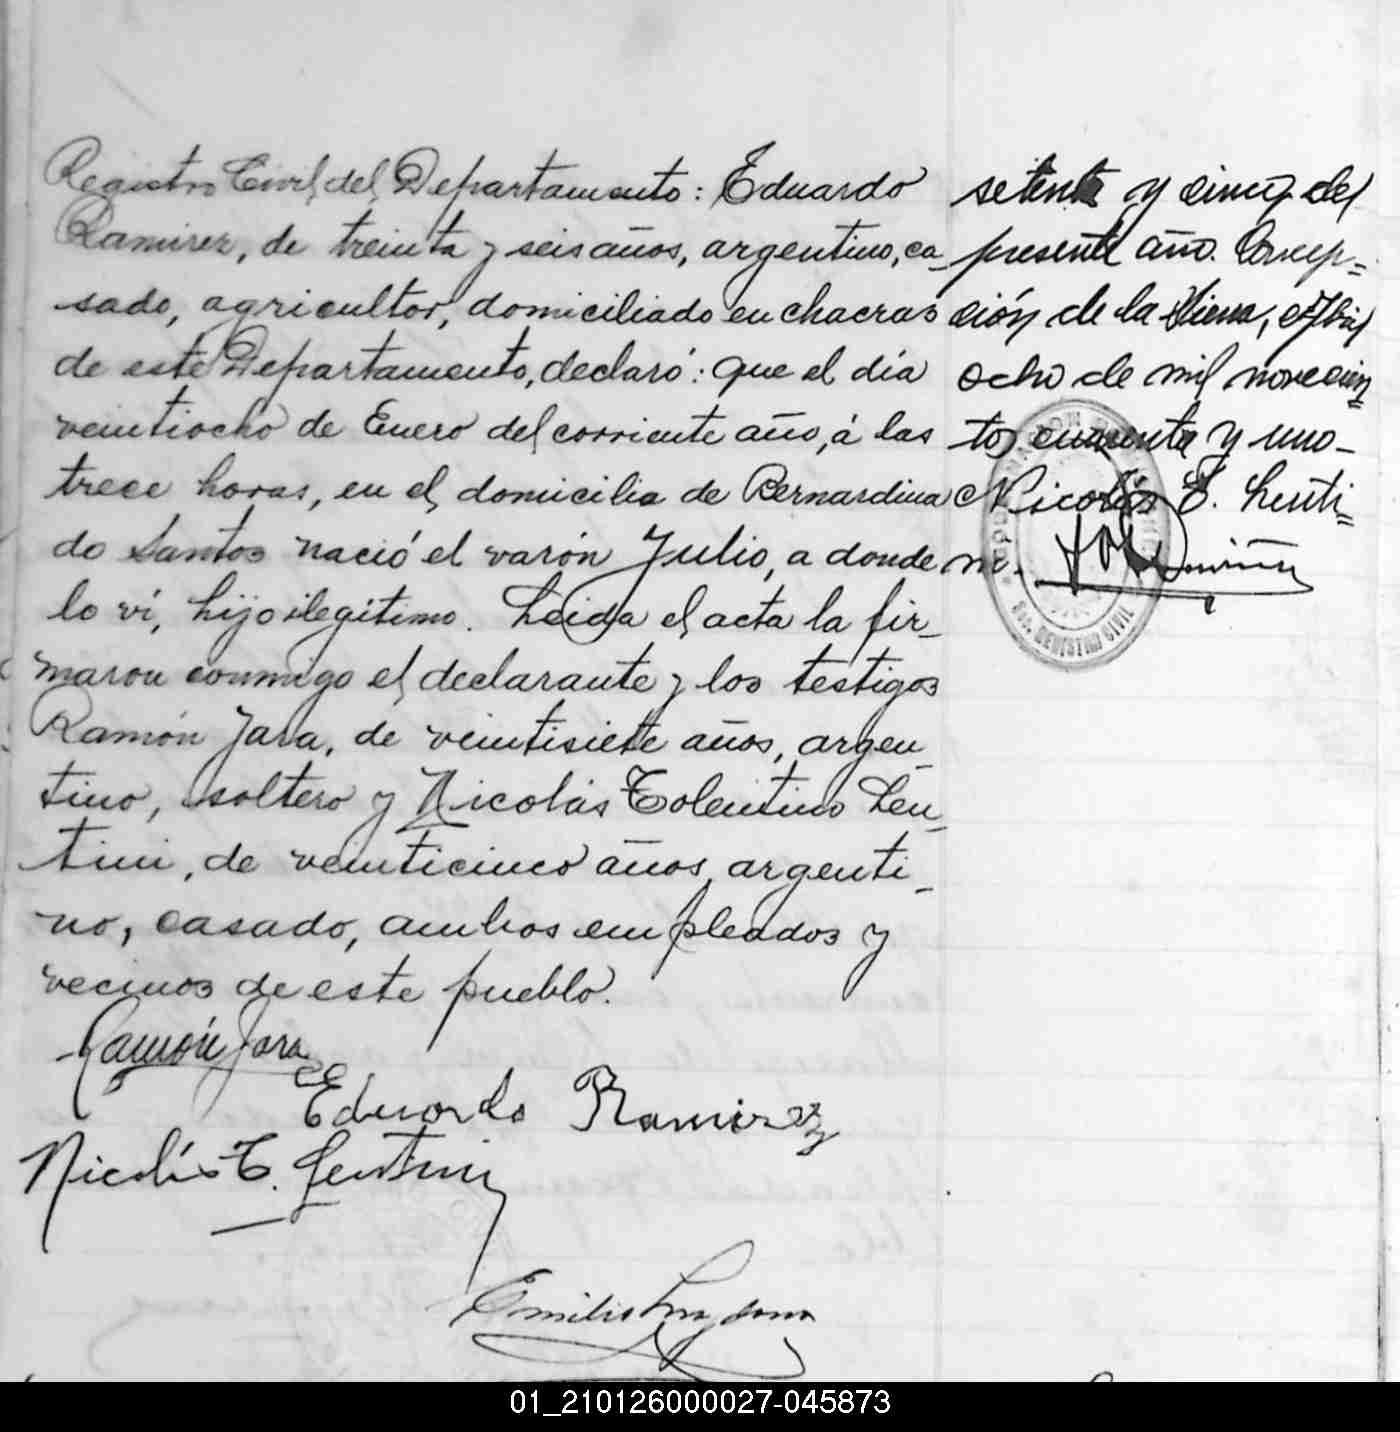 Registro Civil del Departamento: Eduardo
Ramirez, de treinta y seis años, argentino, ca-
sado, agricultor, domiciliado en chacras
de este Departamento, declaró: que el día
veintiocho de Enero del corriente año, á las
trece horas, en el domicilio de Bernardina
do Santos nació el varón Julio, a donde
lo ví, hijo ilegítimo. Leida el acta la fir-
maron conmigo el declarante y los testigos
Ramón Jara, de veintisiete años, argen-
tino, soltero y Nicolás Tolentino Len-
tini, de veinticinco años, argenti-
no, casado, ambos empleados y
vecinos de este pueblo.
Ramón Jara
Eduardo Ramirez
Nicolás T. Lentini
Emilio
setenta y cinco del
presente año. Concep=
ción de la Sierra, Abril
ocho de mil novecien=
tos cuarenta y uno-
Nicolás T. Lenti=
ni.
REGISTRO CIVIL
01_210126000027-045873